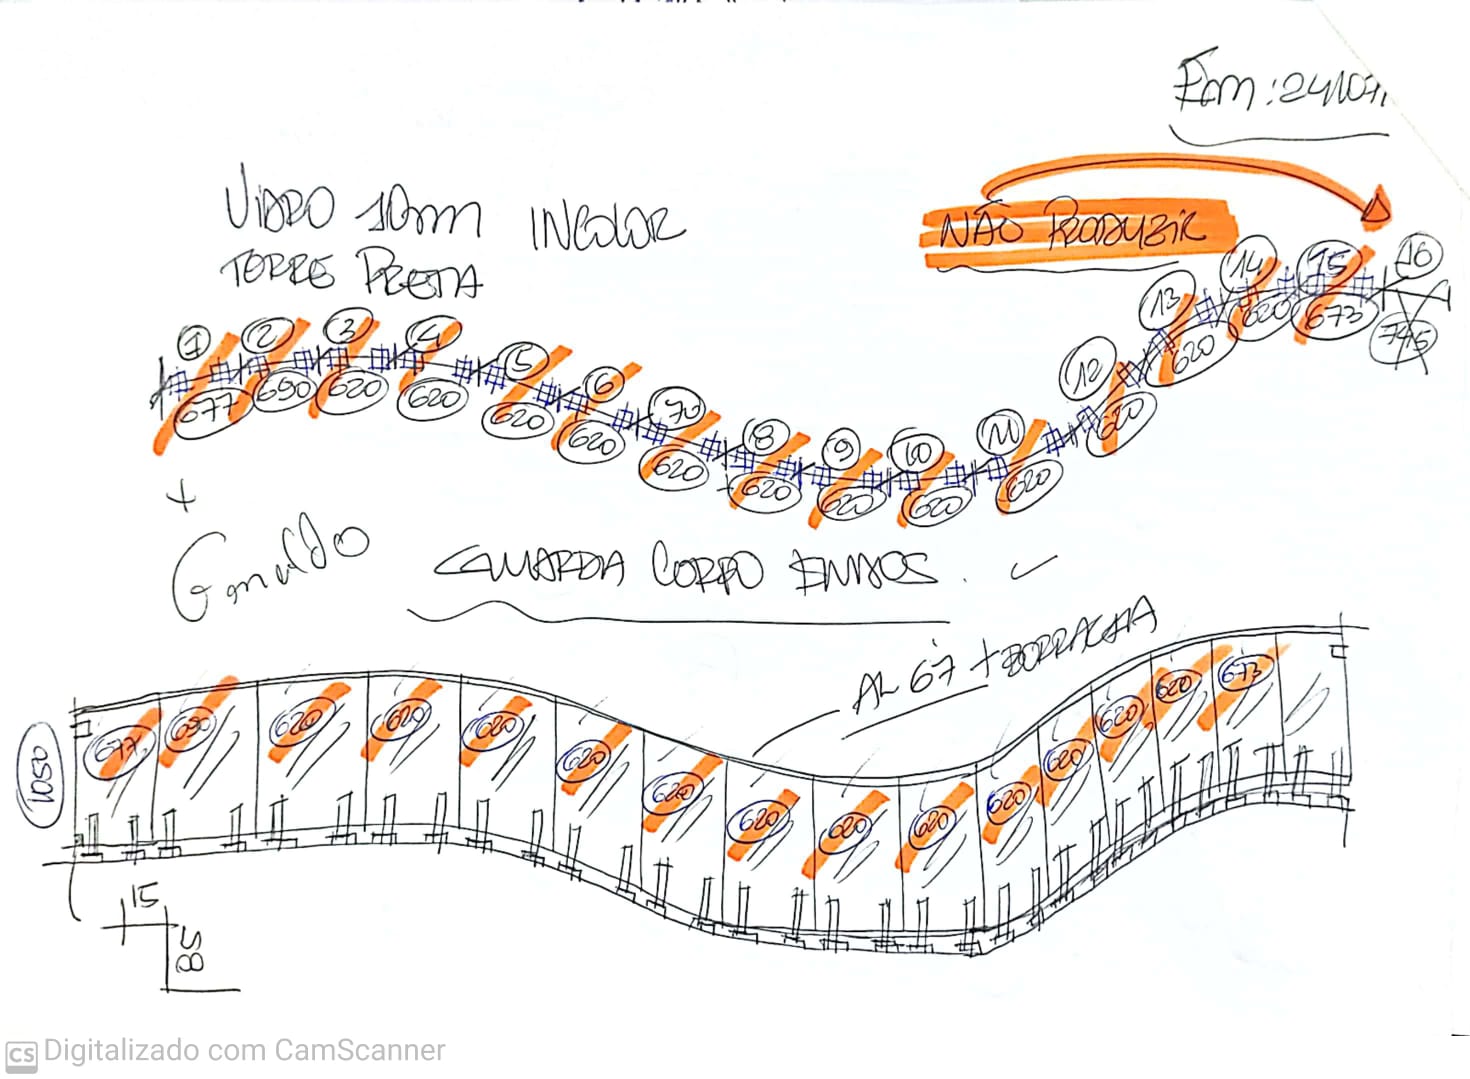 Em: 24/07/
VIDRO 10mm INCOLOR
TORRE PRETA
NÃO PRODUZIR
1 2 3 4 5 6 7 8 9 10 11 12 13 14 15 16
677 690 620 620 620 620 620 620 620 620 620 620 620 620 673 745
+
GUARDA CORPO
AL 67 + BORRACHA
677 690 620 620 620 620 620 620 620 620 620 620 620 620 673
1050
15
85
CS Digitalizado com CamScanner